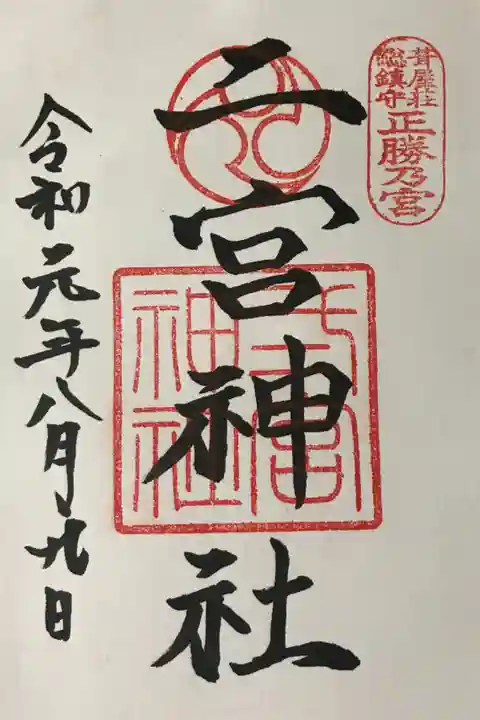 葺屋荘
総鎮守
正勝乃宮
二宮神社
二宮
神社
令和元年八月九日